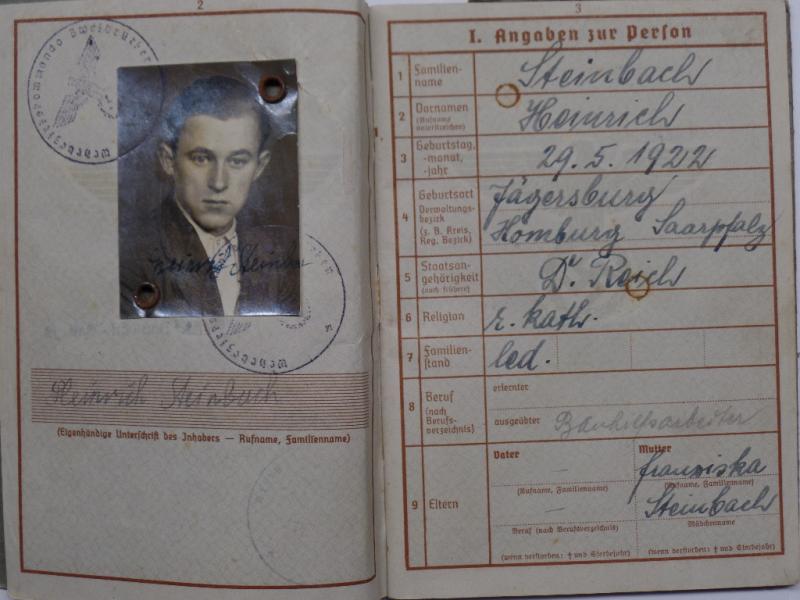 2
Wehrbezirkskommando Zweibrücken
Heinrich Steinbach
(Eigenhändige Unterschrift des Inhabers — Rufname, Familienname)
3
I. Angaben zur Person
1 Familien-
name
Steinbach
2 Vornamen
(Rufname
unterstreichen)
Heinrich
3 Geburtstag,
-monat,
-jahr
29. 5. 1922
4 Geburtsort
Verwaltungs-
bezirk
(z. B. Kreis,
Reg. Bezirk)
Jägersburg
Homburg Saarpfalz
5 Staatsan-
gehörigkeit
(auch frühere)
D. Reich
6 Religion
r. kath.
7 Familien-
stand
led.
8 Beruf
(nach
Berufs-
verzeichnis)
erlernter
ausgeübter Bauhilfsarbeiter
9 Eltern
Vater
—
(Rufname, Familienname)
—
Beruf (nach Berufsverzeichnis)
(wenn verstorben: † und Sterbejahr)
Mutter
Franziska
(Rufname, Familienname)
Steinbach
Mädchenname
(wenn verstorben: † und Sterbejahr)